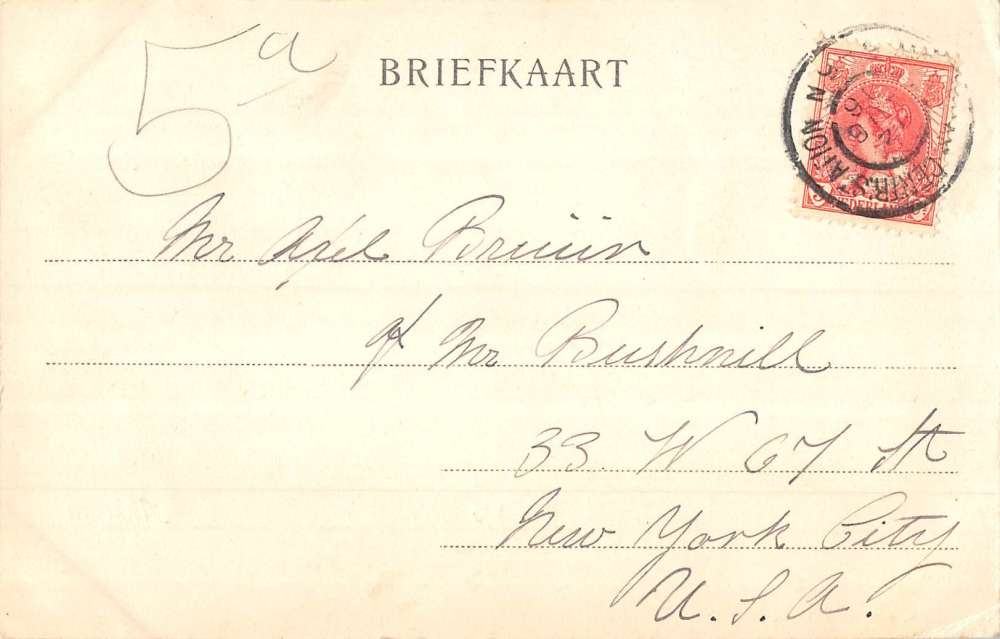 5a
BRIEFKAART
CENTR. STATION
NEDERLAND
Mr Axel Bruün
c/o Mr Bushnill
33 W 67 St
New York City
U. S. A.